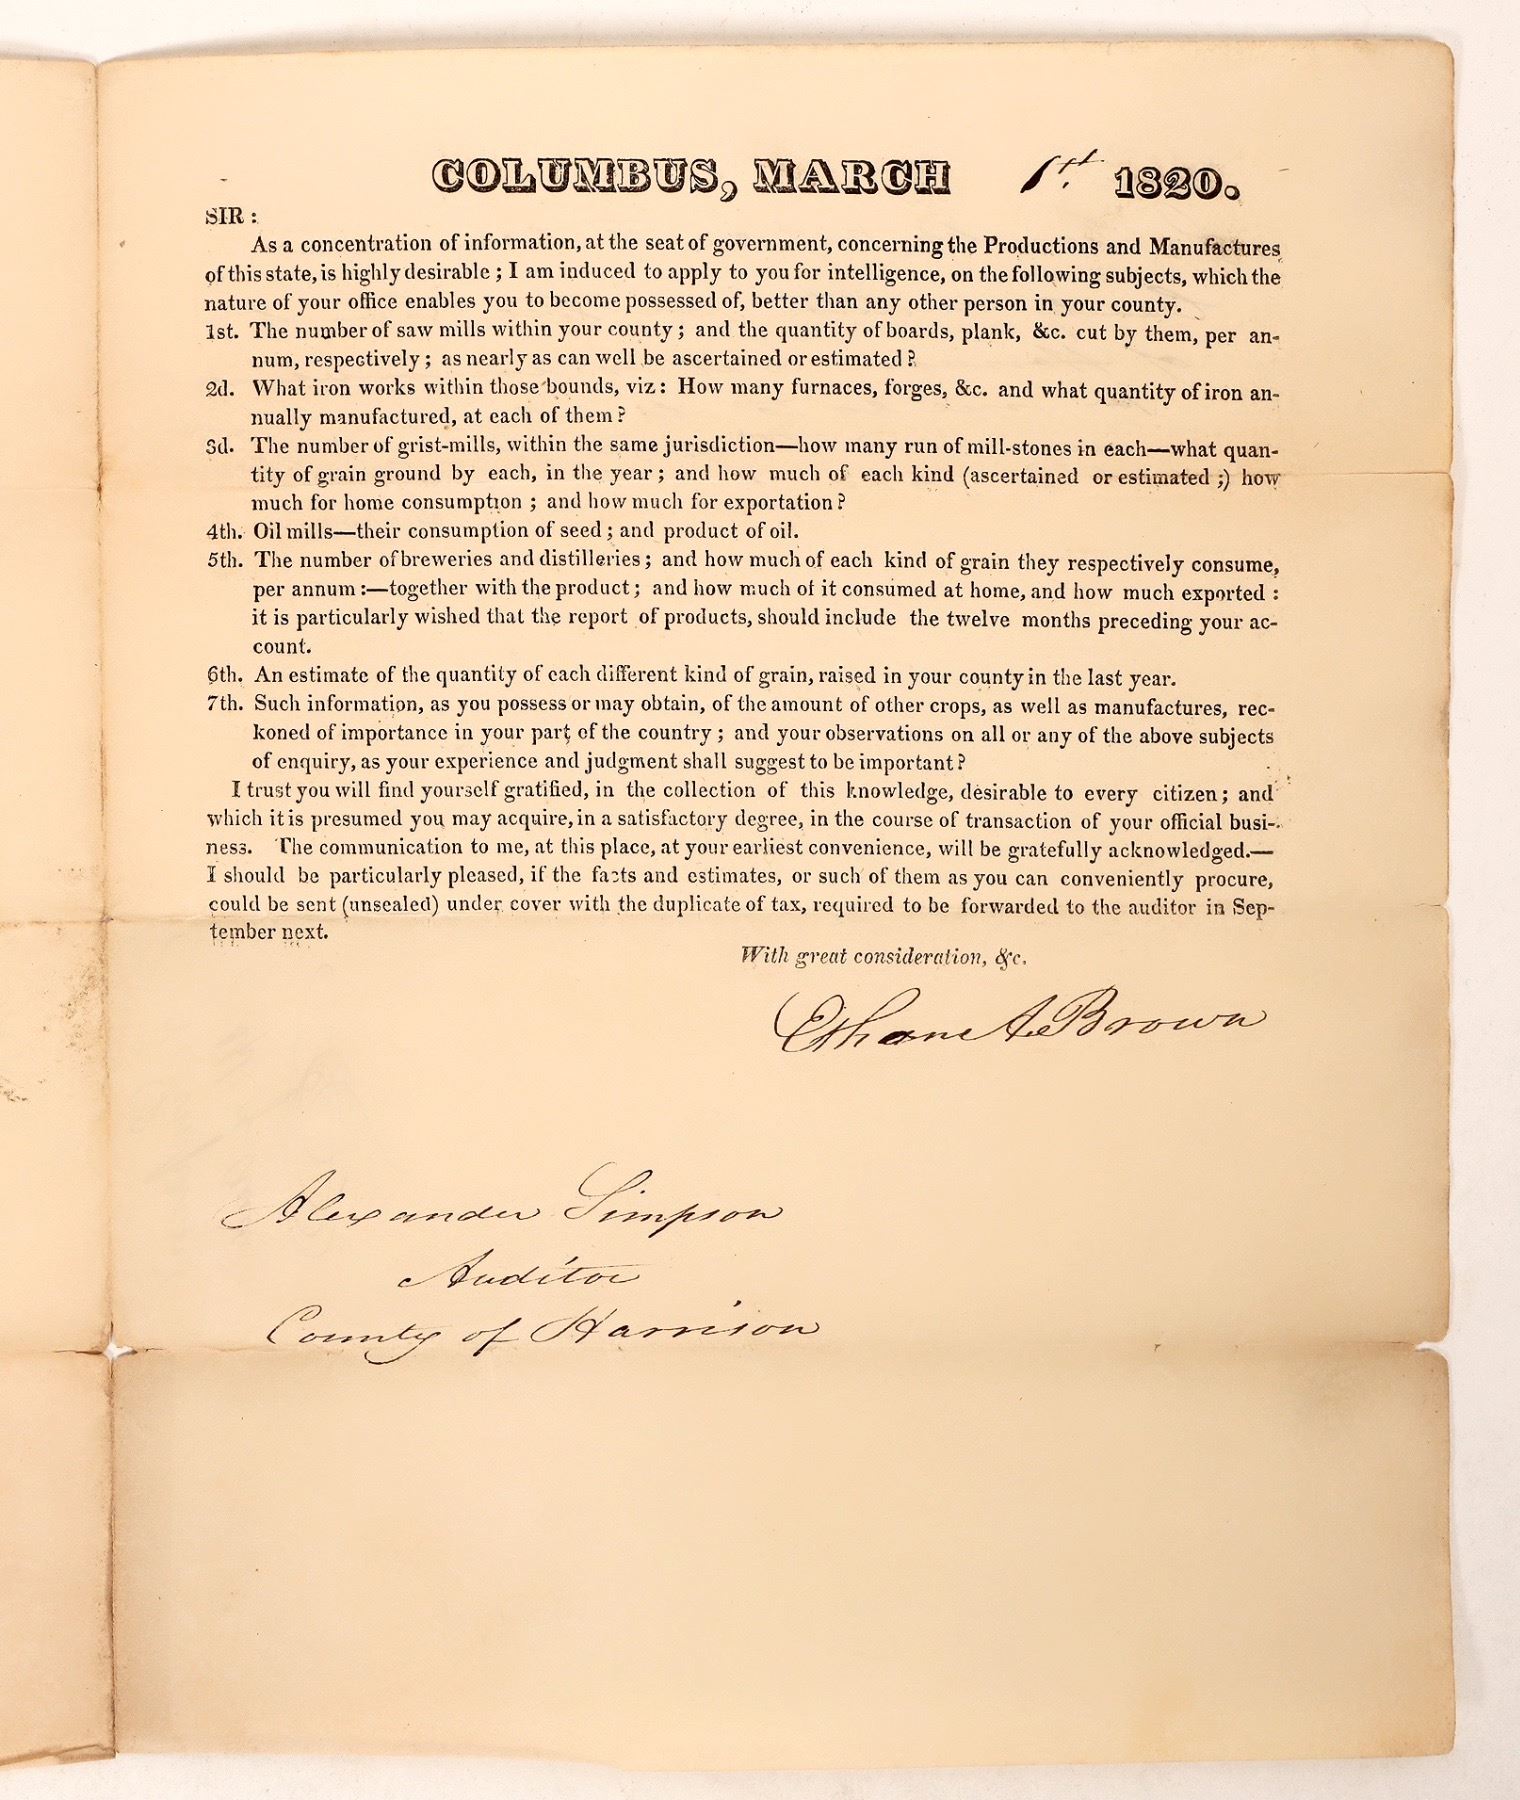 COLUMBUS, MARCH 1st. 1820.
SIR:
As a concentration of information, at the seat of government, concerning the Productions and Manufactures
of this state, is highly desirable; I am induced to apply to you for intelligence, on the following subjects, which the
nature of your office enables you to become possessed of, better than any other person in your county.
1st. The number of saw mills within your county; and the quantity of boards, plank, &c. cut by them, per an-
num, respectively; as nearly as can well be ascertained or estimated?
2d. What iron works within those bounds, viz: How many furnaces, forges, &c. and what quantity of iron an-
nually manufactured, at each of them?
3d. The number of grist-mills, within the same jurisdiction—how many run of mill-stones in each—what quan-
tity of grain ground by each, in the year; and how much of each kind (ascertained or estimated;) how
much for home consumption; and how much for exportation?
4th. Oil mills—their consumption of seed; and product of oil.
5th. The number of breweries and distilleries; and how much of each kind of grain they respectively consume,
per annum:—together with the product; and how much of it consumed at home, and how much exported:
it is particularly wished that the report of products, should include the twelve months preceding your ac-
count.
6th. An estimate of the quantity of each different kind of grain, raised in your county in the last year.
7th. Such information, as you possess or may obtain, of the amount of other crops, as well as manufactures, rec-
koned of importance in your part of the country; and your observations on all or any of the above subjects
of enquiry, as your experience and judgment shall suggest to be important?
I trust you will find yourself gratified, in the collection of this knowledge, desirable to every citizen; and
which it is presumed you may acquire, in a satisfactory degree, in the course of transaction of your official busi-
ness. The communication to me, at this place, at your earliest convenience, will be gratefully acknowledged.—
I should be particularly pleased, if the facts and estimates, or such of them as you can conveniently procure,
could be sent (unsealed) under cover with the duplicate of tax, required to be forwarded to the auditor in Sep-
tember next.
With great consideration, &c.
Ethan A Brown
Alexander Simpson
Auditor
County of Harrison